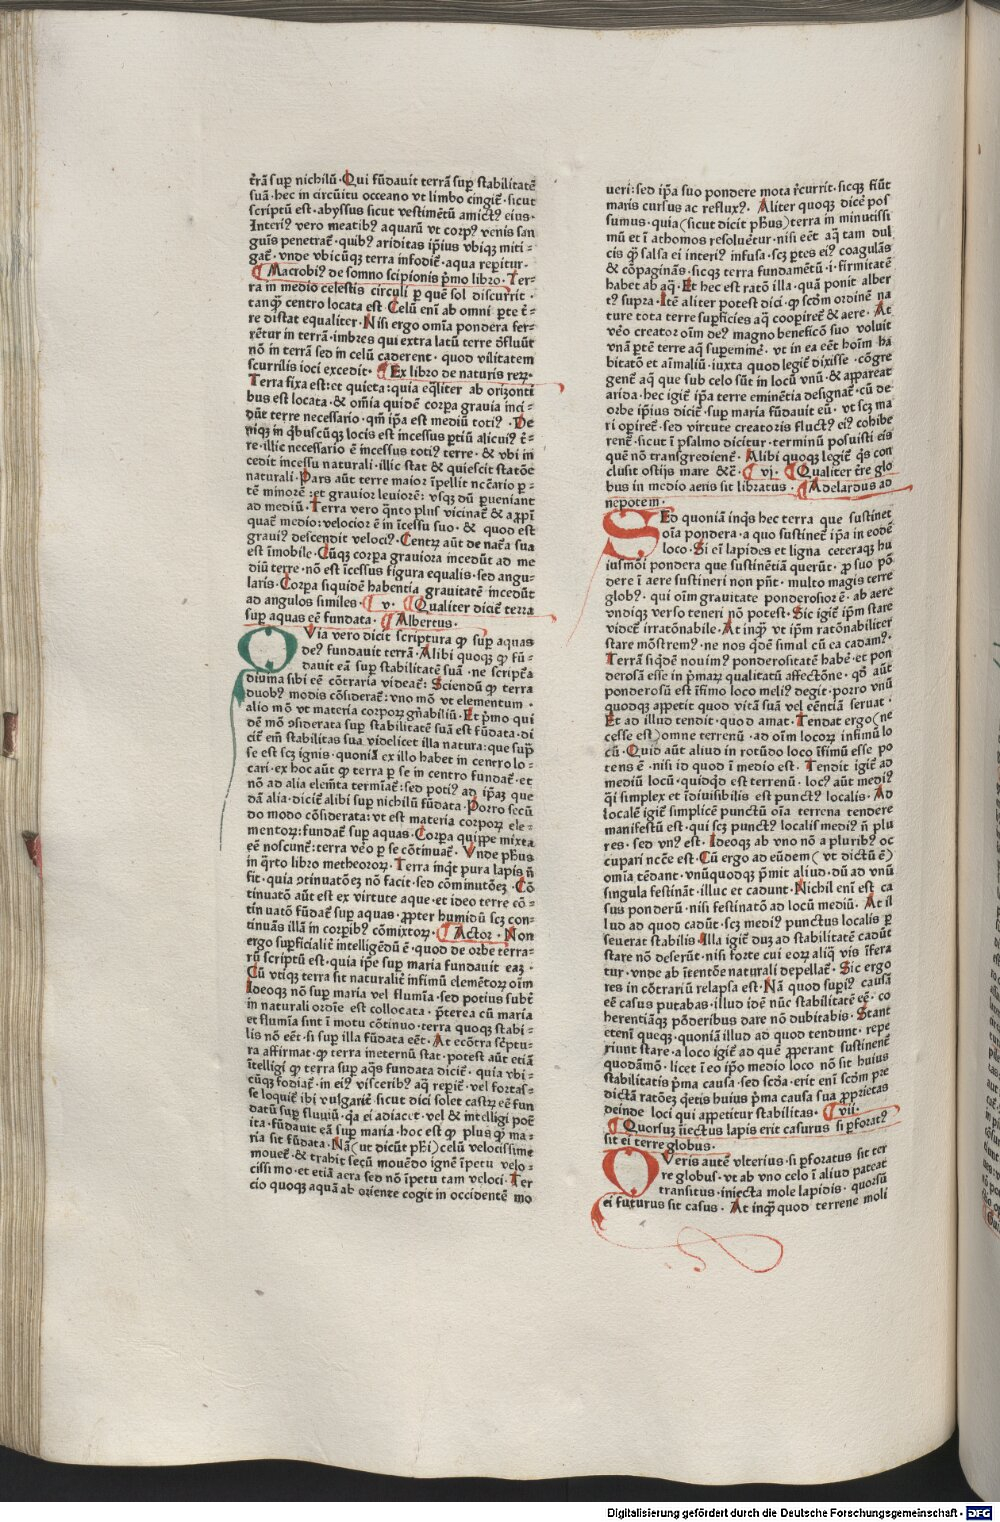 t̄rā sup̱ nichilū·Qui fūdauit terrā sup̱ stabilitatē
suā·hec in circūitu occeano vt limbo cingit̄·sicut
scriptū est·abyssus sicut vestimētū amictꝰ eius·
Interiꝰ vero meatibꝰ aquarū vt corpꝰ venis san
guis penetrat̄·quibꝰ ariditas ip̄ius vbiqꝫ miti⸗
gat̄·vnde vbicūqꝫ terra infodit̄·aqua rep̱itur·
¶ Macrobiꝰ de somno scipionis p̄mo libro·Ter⸗
ra in medio celestis circuli p̱ quē sol discurrit·
tanqꝫ centro locata est·Celū eni ab omni p̱te t̄⸗
re distat equaliter·Nisi ergo om̄ia pondera fer⸗
rētur in terrā·imbres qui extra latū terre ꝺ̄fluūt
nō in terrā sed in celū caderent·quod vilitatem
scurrilis ioci excedit·¶ Ex libro de naturis reꝝ·
Terra fixa est:et quieta:quia eq̄liter ab orizonti
bus est locata·& om̄ia quidē corp̱a grauia inci⸗
dūt terre necessario·qm̄ ip̄a est mediū totiꝰ·De
niqꝫ in q̄buscūqꝫ locis est incessus p̱tiū alicuiꝰ t̄⸗
re·illic necessario ē incessus totiꝰ terre·& vbi in
cedit incessu naturali·illic stat & quiescit statōe
naturali·Pars aūt terre maior īpellit nc̄cario p̱⸗
tē minorē:et grauior leuiorē:vsqꝫ dū p̱ueniant
ad mediū·Terra vero q̄nto plus vicinat̄ & aꝓpī
quat̄ medio:velocior ē in īcessu suo·& quod est
grauiꝰ descendit velociꝰ·Centꝝ aūt de nat̄a sua
est īmobile·Cūqꝫ corp̱a grauiora incedūt ad me
diū terre·nō est īcessus figura equalis·sed angu⸗
laris·Corp̱a siquidē habentia grauitatē incedūt
ad angulos similes·¶ v·¶ Qualiter dicat̄ terra
sup̱ aquas eē fundata·¶ Albertus·
QVia vero dicit scriptura ꝙ sup̱ aquas
deꝰ fundauit terrā·Alibi quoqꝫ ꝙ fū⸗
dauit eā sup̱ stabilitatē suā·ne script̄a
diuina sibi eē cōtraria videat̄:Sciendū ꝙ terra
duobꝰ modis cōsiderat̄:vno mō vt elementum·
alio mō vt materia corpoꝝ gn̄abiliū·Et p̄mo qui
dē mō ꝯsiderata sup̱ stabilitatē suā est fūdata·di
cit̄ em̄ stabilitas sua videlicet illa natura:que sup̱
se est scꝫ ignis·quoniā ex illo habet in centro lo⸗
cari·ex hoc aūt ꝙ terra p̱ se in centro fundat̄·et
nō ad alia elem̄ta termiat̄:sed potiꝰ ad ip̄aꝫ que
dā alia·dicit̄ alibi sup̱ nichilū fūdata·Porro secū
do modo cōsiderata:vt est materia corpoꝝ ele⸗
mentoꝝ:fundat̄ sup̱ aquas·Corp̱a quippe mixta
eē noscunt̄:terra v̄o p̱ se cōtinuat̄·Vnde ph̄us
in q̄rto libro metheoroꝝ·Terra inq̄t pura lapis n̄
fit·quia ꝯtinuatōeꝫ nō facit·sed cōminutōeꝫ·Cō
tinuatō aūt est ex virtute aque·et ideo terre cō⸗
tinuatō fūdat̄ sup̱ aquas·ꝓpter humidū scꝫ con⸗
tinuās illā in corp̱ibꝰ cōmixtoꝝ·¶ Actor·Non
ergo sup̱ficialit̄ intelligēdū ē·quod de orbe terra⸗
rū scriptū est·quia ip̄e sup̱ maria fundauit eaꝫ·
Cū vtiqꝫ terra sit naturalit̄ infimū elemētoꝝ oīm
Ideoqꝫ nō sup̱ maria vel flumīa·sed potius subt̄
in naturali ordīe est collocata·p̄terea cū maria
et flumīa sint ī motu cōtinuo·terra quoqꝫ stabi⸗
lis nō eēt·si sup̱ illa fūdata eēt·At ecōtra sc̄ptu⸗
ra affirmat·ꝙ terra ineternū stat·potest aūt etiā
ītelligi ꝙ terra sup̱ aq̄s fundata dicit̄·quia vbi⸗
cūqꝫ fodiat̄·in eiꝰ visceribꝰ aq̄ rep̱it̄·vel fortas⸗
se loquit̄ ibi vulgarit̄·sicut dici solet castꝝ eē fun
datū sup̱ fluuiū·q̄a ei adiacet·vel & intelligi pot̄
ita·fūdauit eā sup̱ maria·hoc est ꝙ plus qꝫ ma⸗
ria sit fūdata·Nā(vt dicūt ph̄i)celū velocissime
mouet̄·& trahit secū mouēdo ignē īpetu velo⸗
cissimo·et etiā aera sed nō īpetu tam veloci·Ter
cio quoqꝫ aquā ab oriente cogit in occidentē mo
ueri:sed ip̄a suo pondere mota r̄currit·sicqꝫ fiūt
maris cursus ac refluxꝰ·Aliter quoqꝫ dice̱ pos
sumus·quia(sicut dicit ph̄us)terra in minutissi
mū et ī athomos resoluet̄ur·nisi eēt aq̄ tam dul
cis qꝫ salsa ei interiꝰ infusa·scꝫ p̱tes eiꝰ coagulās
& cōpaginās·sicqꝫ terra fundamētū·i·firmitatē
habet ab aq̄·Et hec est ratō illa·quā ponit alber
tꝰ supra·Itē aliter potest dici·ꝙ scd̄m ordinē na
ture tota terre sup̱ficies aq̄ coop̱iret̄ & aere·At
v̄o creator oīm deꝰ magno beneficō suo voluit
vnā p̱tē terre aq̄ sup̱emine̱·vt in ea eēt hoīm ha
bitatō et aīmaliū·iuxta quod legit̄ dixisse·cōgre
gent̄ aq̄ que sub celo sūt in locū vnū·& appareat
arida·hec igit̄ ip̄a terre eminētia designat̄·cū de
orbe ip̄ius dicit̄·sup̱ maria fūdauit eū·vt scꝫ ma
ri op̱iret̄·sed virtute creatoris fluctꝰ eiꝰ cohibe
rent̄·sicut ī psalmo dicitur·terminū posuisti eis
quē nō transgredient̄·Alibi quoqꝫ legit̄ q̄s con
clusit ostijs mare &c̄·¶ vj·¶ Qualiter t̄re glo
bus in medio aeris sit libratus·¶ Adelardus ad
nepotem·
SEd quoniā inq̄s hec terra que sustinet
oīa pondera·a quo sustinet̄ ip̄a in eodē
loco·Si ei̱ lapides et ligna ceteraqꝫ hu
iusmōi pondera que sustinētiā querūt·ꝓ suo pō
dere ī aere sustineri non pn̄t·multo magis terre
globꝰ·qui oīm grauitate ponderosior ē·ab aere
vndiqꝫ verso teneri nō potest·Sic igit̄ ip̄m stare
videt̄ irratōnabile·At inqꝫ vt ip̄m ratōnabiliter
stare mōstremꝰ·ne nos q̄dē simul cū ea cadamꝰ·
Terrā siq̄dē nouimꝰ ponderositatē habe̱·et pon
derosā esse in p̄maꝝ qualitatū affectōne·qd̄ aūt
ponderosū est īfimo loco meliꝰ degit·porro vnū
quodqꝫ appetit quod vitā suā vel cēntiā seruat·
Et ad illud tendit·quod amat·Tendat ergo(ne
cesse est)omne terrenū·ad oīm locoꝝ infimū lo
cū·Quid aūt aliud in rotūdo loco īfimū esse po
tens ē·nisi id quod ī medio est·Tendit igit̄ ad
mediū locū·quidq̄d est terrenū·locꝰ aūt mediꝰ
q̄i simplex et īdiuisibilis est punctꝰ localis·Ad
localē igit̄ simplicē punctū oīa terrena tendere
manifestū est·qui scꝫ punctꝰ localis mediꝰ n̄ plu
res·sed vnꝰ est·Ideoqꝫ ab vno nō a pluribꝰ oc
cupari nc̄cē est·Cū ergo ad eūdem(vt dictū ē)
omia tēdant·vnūquodqꝫ p̄mit aliud·dū ad vnū
singula festināt·illuc et cadunt·Nichil eni est ca
sus ponderū·nisi festinatō ad locū mediū·At il
lud ad quod cadūt·scꝫ mediꝰ punctus localis p̱
seuerat stabilis·Illa igit̄ duꝫ ad stabilitatē cadūt
stare nō deserūt·nisi forte cui eoꝝ aliq̄ vis īfera
tur·vnde ab ītentōe naturali depellat̄·Sic ergo
res in cōtrariū relapsa est·Nā quod sup̱iꝰ causā
eē casus putabas·illud idē nūc stabilitatē eē·co
herentiāqꝫ pōderibus dare nō dubitabis·Stant
eteni queqꝫ·quoniā illud ad quod tendunt·repe
riunt stare·a loco igit̄ ad quē ꝓperant sustinent̄
quodāmō·licet ī eo ip̄o medio loco nō sit huius
stabilitatis p̄ma causa·sed scd̄a·erit eni scd̄m pre
dictā ratōeꝫ q̄etis huius p̄ma causa sua ꝓprietas
deinde loci qui appetitur stabilitas·¶ vii·
¶ Quorsuꝫ īiectus lapis erit casurus si p̱foratꝰ
sit ei terre globus·
QVeris autē vlterius·si p̱foratus sit ter
re globus·vt ab vno celo ī aliud pateat
transitus·iniecta mole lapidis·quorsū
ei futurus sit casus·At inqꝫ quod terrene moli
Digitalisierung gefördert durch die Deutsche Forschungsgemeinschaft - DFG